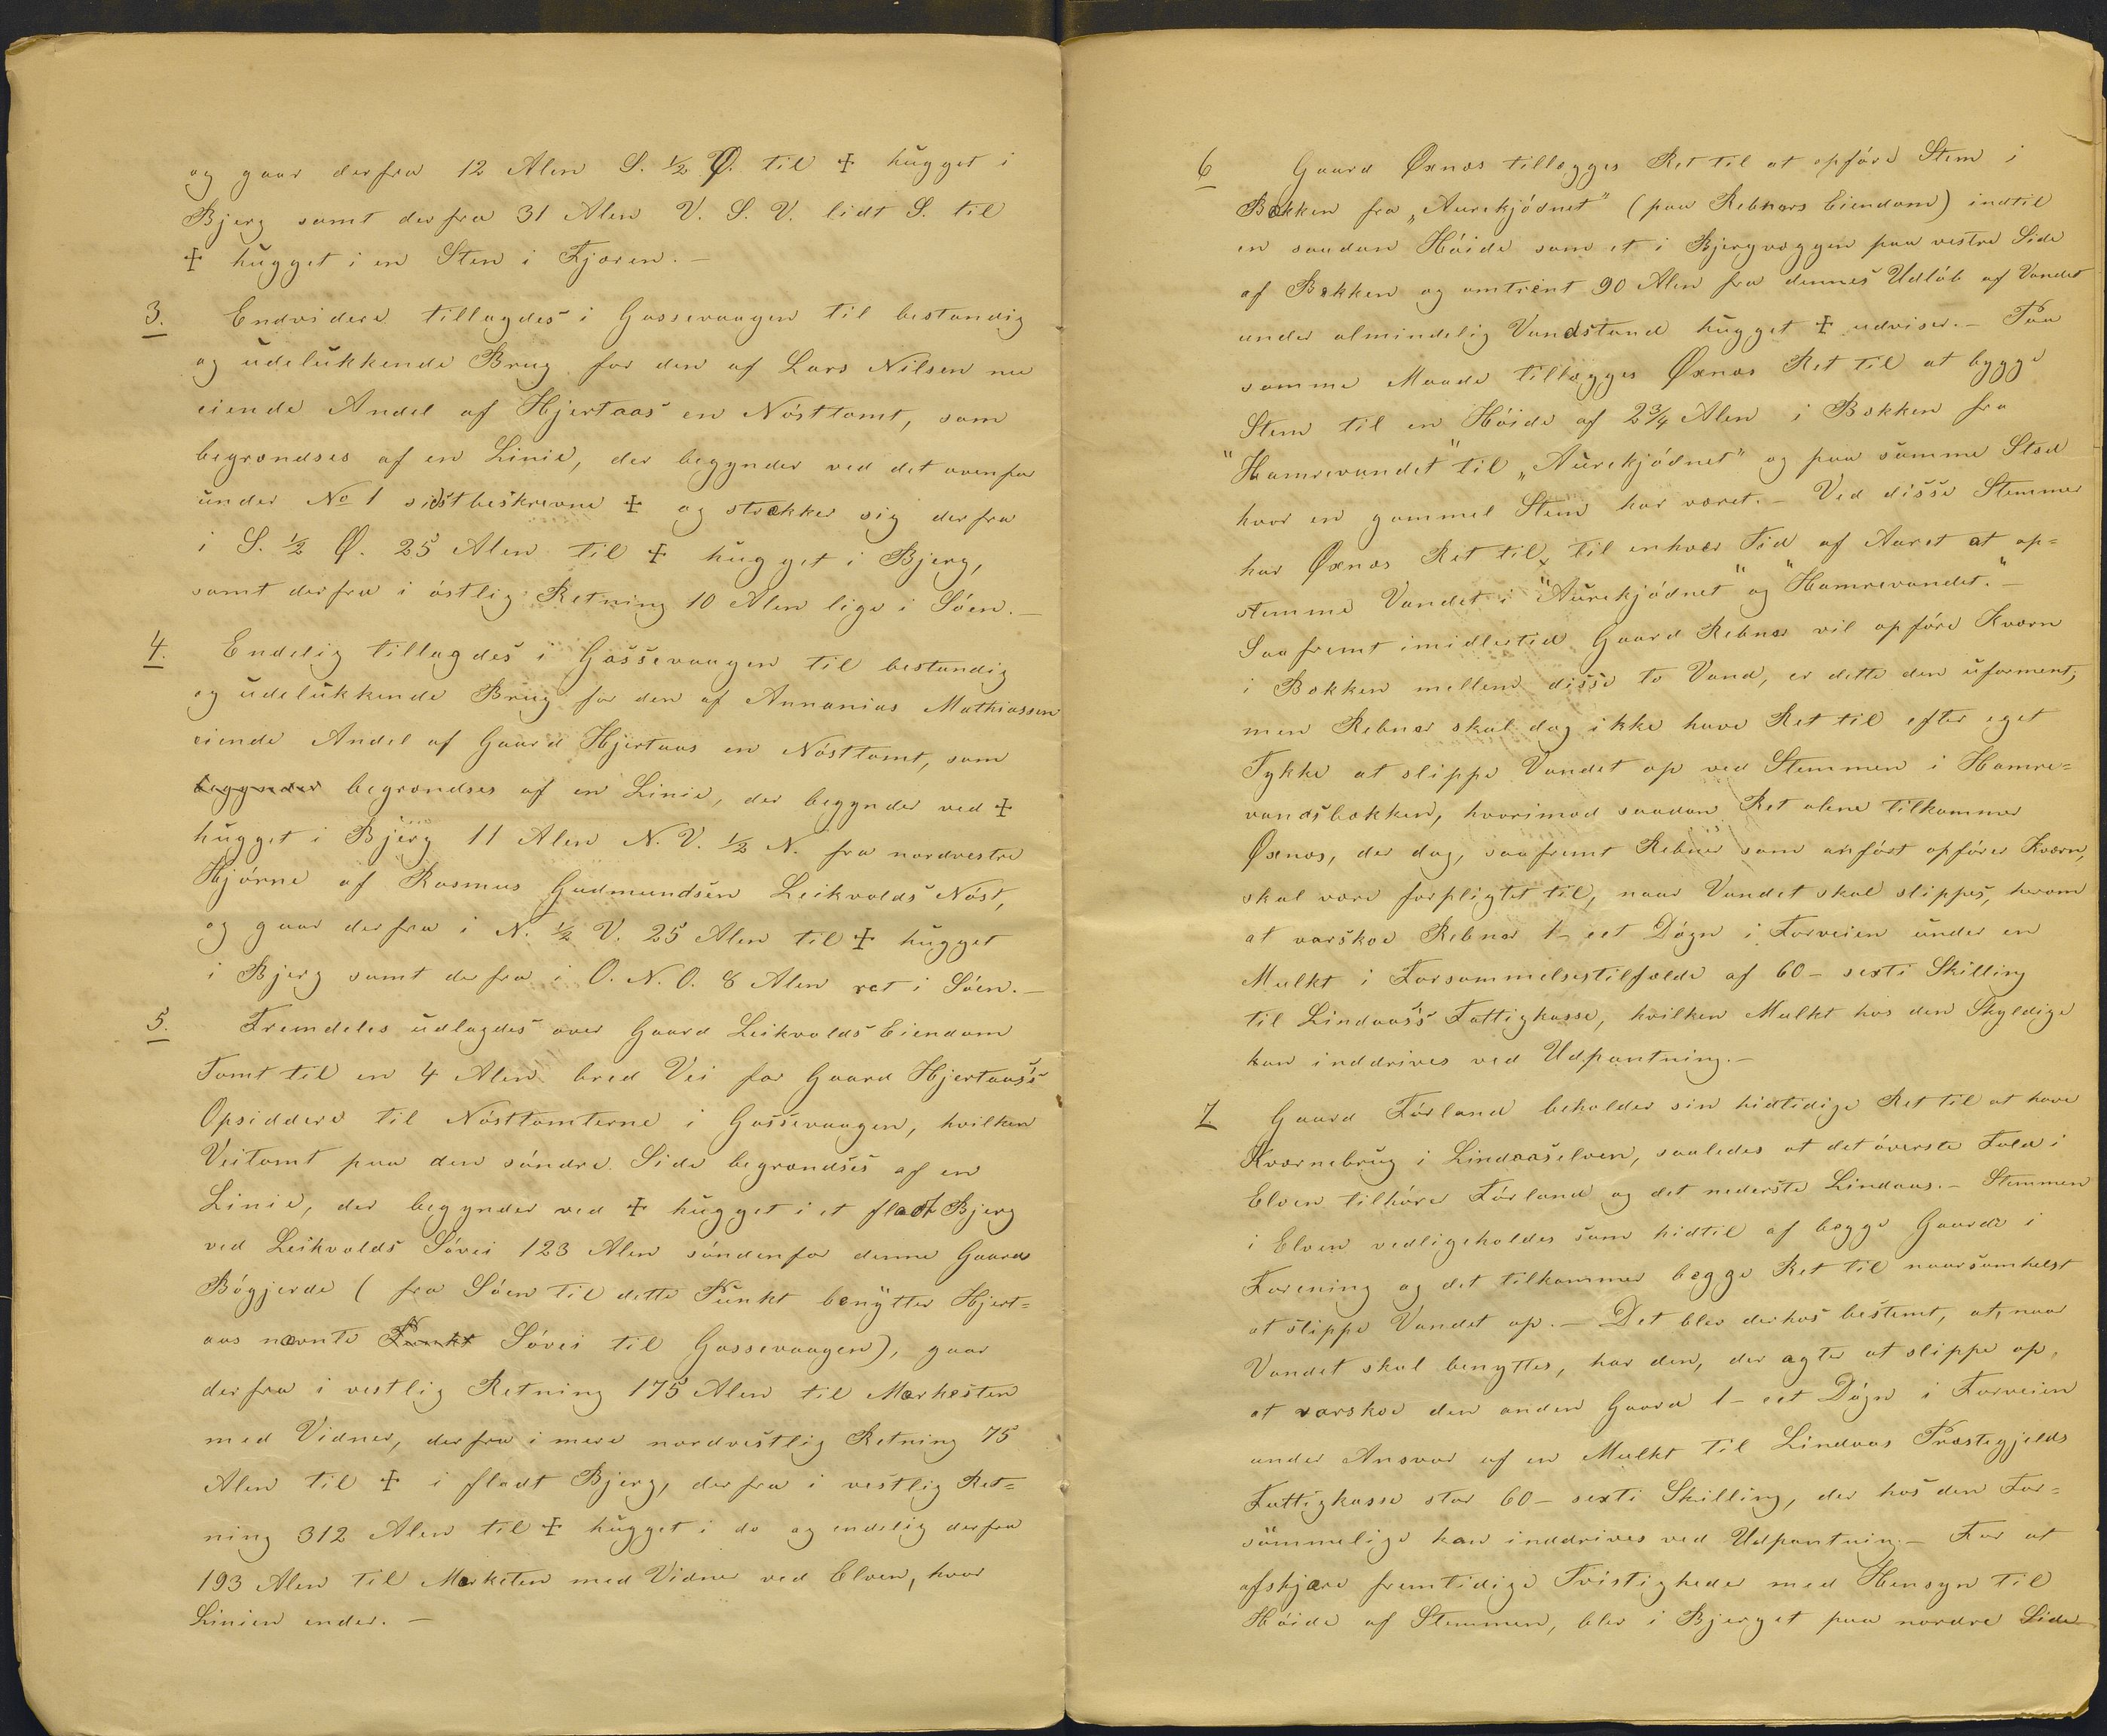 og gaar derfra 12 Alen S. ½ Ø. til ☩ hugget i
Bjerg samt derfra 31 Alen V. S. V. lidt S. til
☩ hugget i en Sten i Fjæren. —
3. Endvidere tillagdes i Gassevaagen til bestandig
og udelukkende Brug for den af Lars Nilsen nu
eiende Andel af Hjertaas en Nösttomt, som
begrændses af en Linie, der begynder ved det ovenfor
under No 1 sidstbeskrevne ☩ og strækker sig derfra
i S. ½ Ø. 25 Alen til ☩ hugget i Bjerg,
samt derfra i östlig Retning 10 Alen lige i Söen. —
4. Endelig tillagdes i Gassevaagen til bestandig
og udelukkende Brug for den af Annanias Mathiassen
eiende Andel af Gaard Hjertaas en Nösttomt, som
begynder begrændses af en Linie, der begynder ved ☩
hugget i Bjerg 11 Alen N. V. ½ N. fra nordvestre
Hjörne af Rasmus Gudmundsen Leikvolds Nöst,
og gaar derfra i N. ½ V. 25 Alen til ☩ hugget
i Bjerg samt derfra i O. N. O. 8 Alen ret i Söen. —
5. Fremdeles udlagdes over Gaard Leikvolds Eiendom
Tomt til en 4 Alen bred Vei for Gaard Hjertaas's
Opsiddere til Nösttomterne i Gassevaagen, hvilken
Veitomt paa den söndre Side begrændses af en
Linie, der begynder ved ☩ hugget i et fladt Bjerg
ved Leikvolds Sövei 123 Alen söndenfor denne Gaards
Bögjerde ( fra Söen til dette Punkt benytter Hjert=
aas nævnte Punkt Sövei til Gassevaagen), gaar
derfra i vestlig Retning 175 Alen til Mærkesten
med Vidner, derfra i mere nordvestlig Retning 75
Alen til ☩ i fladt Bjerg, derfra i vestlig Ret=
ning 312 Alen til ☩ hugget i do og endelig derfra
193 Alen til Mærksten med Vidner ved Elven, hvor
Linien ender. —
6 Gaard Öxnæs tillægges Ret til at opföre Stem i
Bækken fra „Aurekjödnet" (paa Rebnors Eiendom) indtil
en saadan Höide som et i Bjergvæggen paa vestre Side
af Bækken og omtrent 90 Alen fra dennes Udlöb af Vandet
under almindelig Vandstand hugget ☩ udviser. — Paa
samme Maade tillægges Öxnæs Ret til at bygge
Stem til en Höide af 2¾ Alen i Bækken fra
"Hamrevandet" til „Aurekjödnet" og paa samme Sted
hvor en gammel Stem har været. — Ved disse Stemmer
har Öxnæs Ret til, til enhver Tid af Aaret at op=
stemme Vandet i "Aurekjödnet" og "Hamrevandet." —
Saafremt imidlertid Gaard Rebnor vil opföre Kværn
i Bækken mellem disse to Vand, er dette den uforment,
men Rebnor skal dog ikke have Ret til efter eget
Tykke at slippe Vandet op ved Stemmen i Hamre=
vandsbækken, hvorimod saadan Ret alene tilkommer
Öxnæs, der dog, saafremt Rebnor som anfört opförer Kværn,
skal være forpligtet til, naar Vandet skal slippes, herom
at varskoe Rebnor 1- eet Dögn i Forveien under en
Mulkt i Forsømmelsestilfælde af 60 - sexti Skilling
til Lindaas's Fattigkasse, hvilken Mulkt hos den Skyldige
kan inddrives ved Udpantning. —
7. Gaard Förland beholder sin hidtidige Ret til at have
Kværnebrug i Lindaaselven, saaledes at det överste Fald i
Elven tilhörer Förland og det nederste Lindaas. — Stemmen
i Elven vedligeholdes som hidtil af begge Gaarde i
Forening og det tilkommer begge Ret til naarsomhelst
at slippe Vandet op. — Det blev derhos bestemt, at, naar
Vandet skal benyttes, har den, der agter at slippe op,
at varskoe den anden Gaard 1 - eet Dögn i Forveien
under Ansvar af en Mulkt til Lindaas Præstegjelds
Fattigkasse stor 60 - sexti Skilling, der hos den For=
sömmelige kan inddrives ved Udpantning. — For at
afskjære fremtidige Tvistigheder med Hensyn til
Höide af Stemmen, blev i Bjerget paa nordre Side